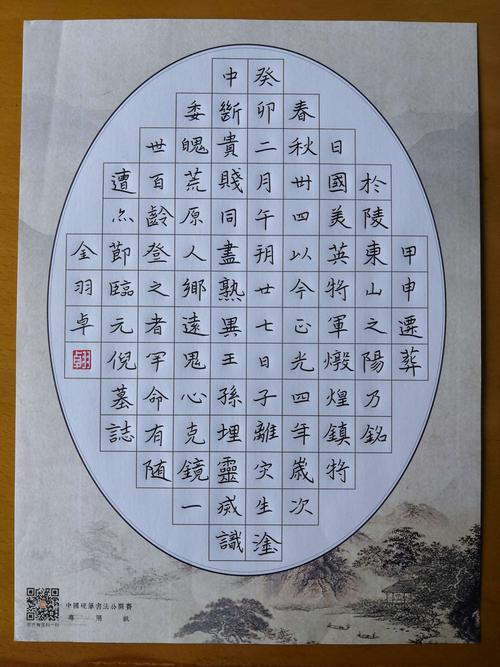 甲申遷葬
於陵東山之陽乃銘
日國美英將軍燉煌鎮將
春秋卌四以今正光四年歲次
癸卯二月午朔廿七日子離灾生塗
中斷貴賤同盡熟異王孫埋靈烕識
委魄荒原人鄉遠鬼心克鏡一
世百齡登之者罕命有随
遭節臨元倪墓誌
金羽卓
中國硬筆書法公開賽
專用紙